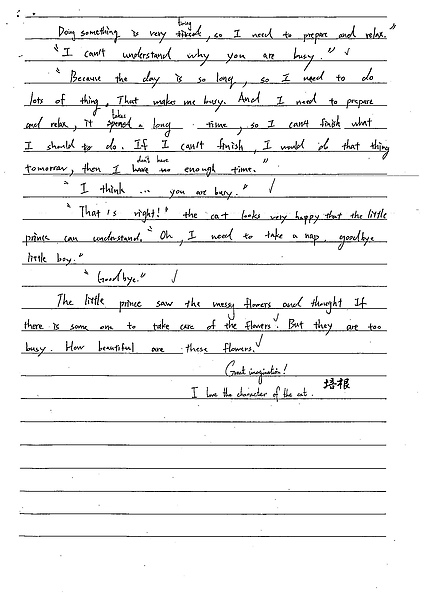 tiring
Doing something is very tired, so I need to prepare and relax."
"I can't understand why you are busy."
"Because the day is so long, so I need to do
lots of thing, That makes me busy. And I need to prepare
takes
and relax, it spend a long time, so I can't finish what
I should to do. If I can't finish, I would do that thing
don't have
tomorrow, then I have no enough time."
"I think ... you are busy."
"That is right!" the cat looks very happy that the little
prince can understand. "Oh, I need to take a nap, goodbye
little boy."
"Goodbye."
The little prince saw the messy flowers and thought If
there is some one to take care of the flowers. But they are too
busy. How beautiful are these flowers.
Great imagination!
I love the character of the cat. 培根